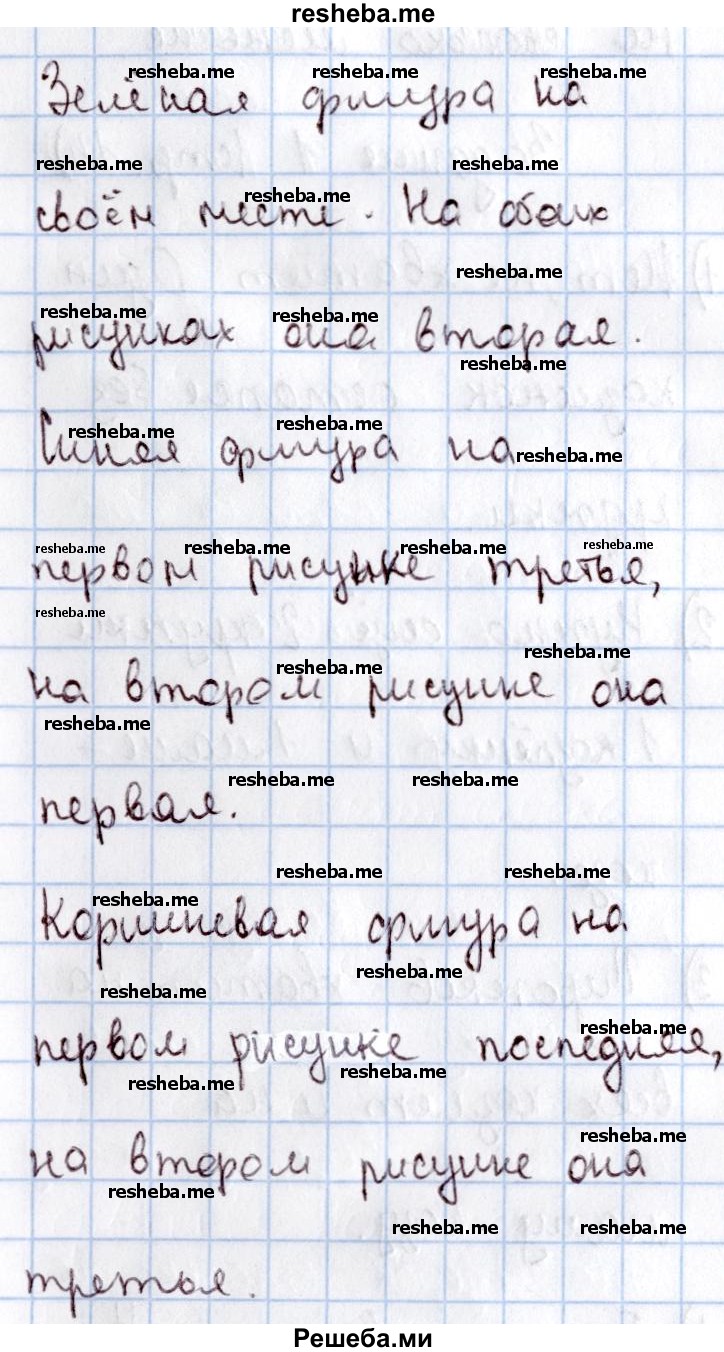 resheba.me
resheba.me resheba.me resheba.me
Зелёная фигура на
resheba.me resheba.me
resheba.me
своём месте. На обоих
resheba.me
resheba.me resheba.me
рисунках она вторая.
resheba.me
resheba.me resheba.me
Синяя фигура на
resheba.me
resheba.me resheba.me resheba.me resheba.me
первом рисунке третья,
resheba.me
resheba.me
resheba.me
на втором рисунке она
resheba.me
resheba.me resheba.me
первая.
resheba.me resheba.me
resheba.me
Коричневая фигура на
resheba.me
resheba.me
resheba.me
первом рисунке последняя,
resheba.me resheba.me
resheba.me
на втором рисунке она
resheba.me
resheba.me resheba.me
третья.
Решеба.ми